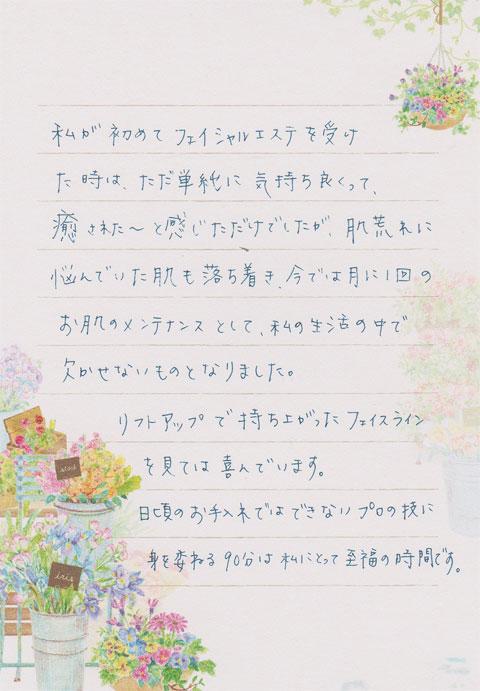 私が初めてフェイシャルエステを受け
た時は、ただ単純に気持ち良くって、
癒された〜と感じただけでしたが、肌荒れに
悩んでいた肌も落ち着き、今では月に1回の
お肌のメンテナンスとして、私の生活の中で
欠かせないものとなりました。
リフトアップで持ち上がったフェイスライン
を見ては喜んでいます。
日頃のお手入れではできないプロの技に
身を委ねる90分は私にとって至福の時間です。
stock
iris